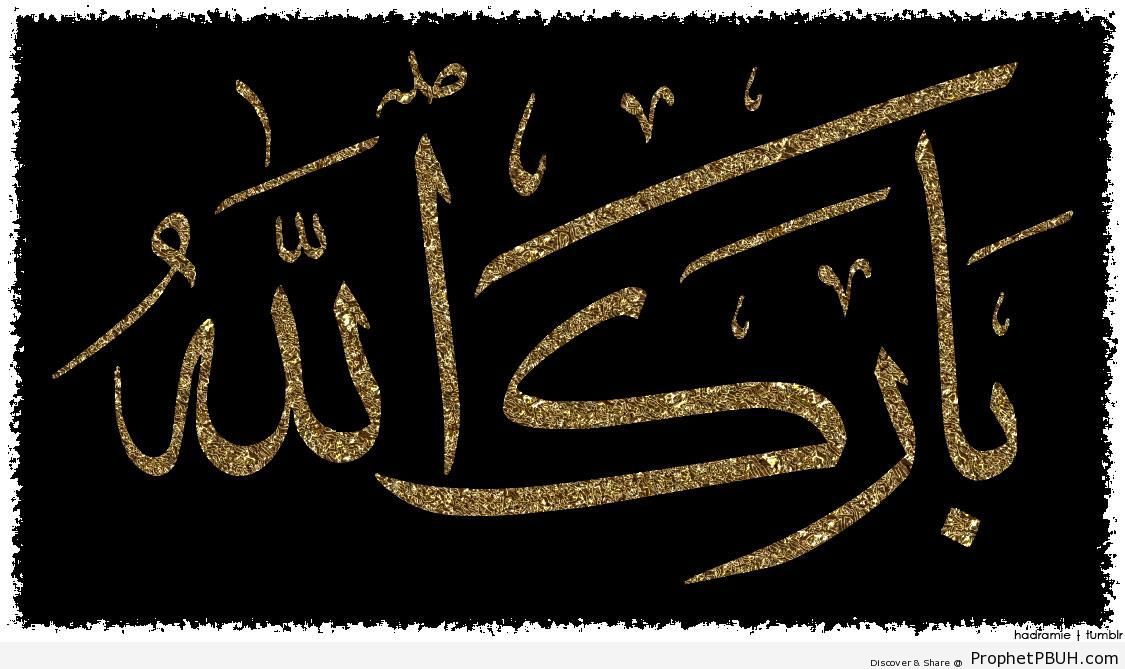 بَارَكَ اللّٰهُ
hadramie | tumblr
Discover & Share @ ProphetPBUH.com